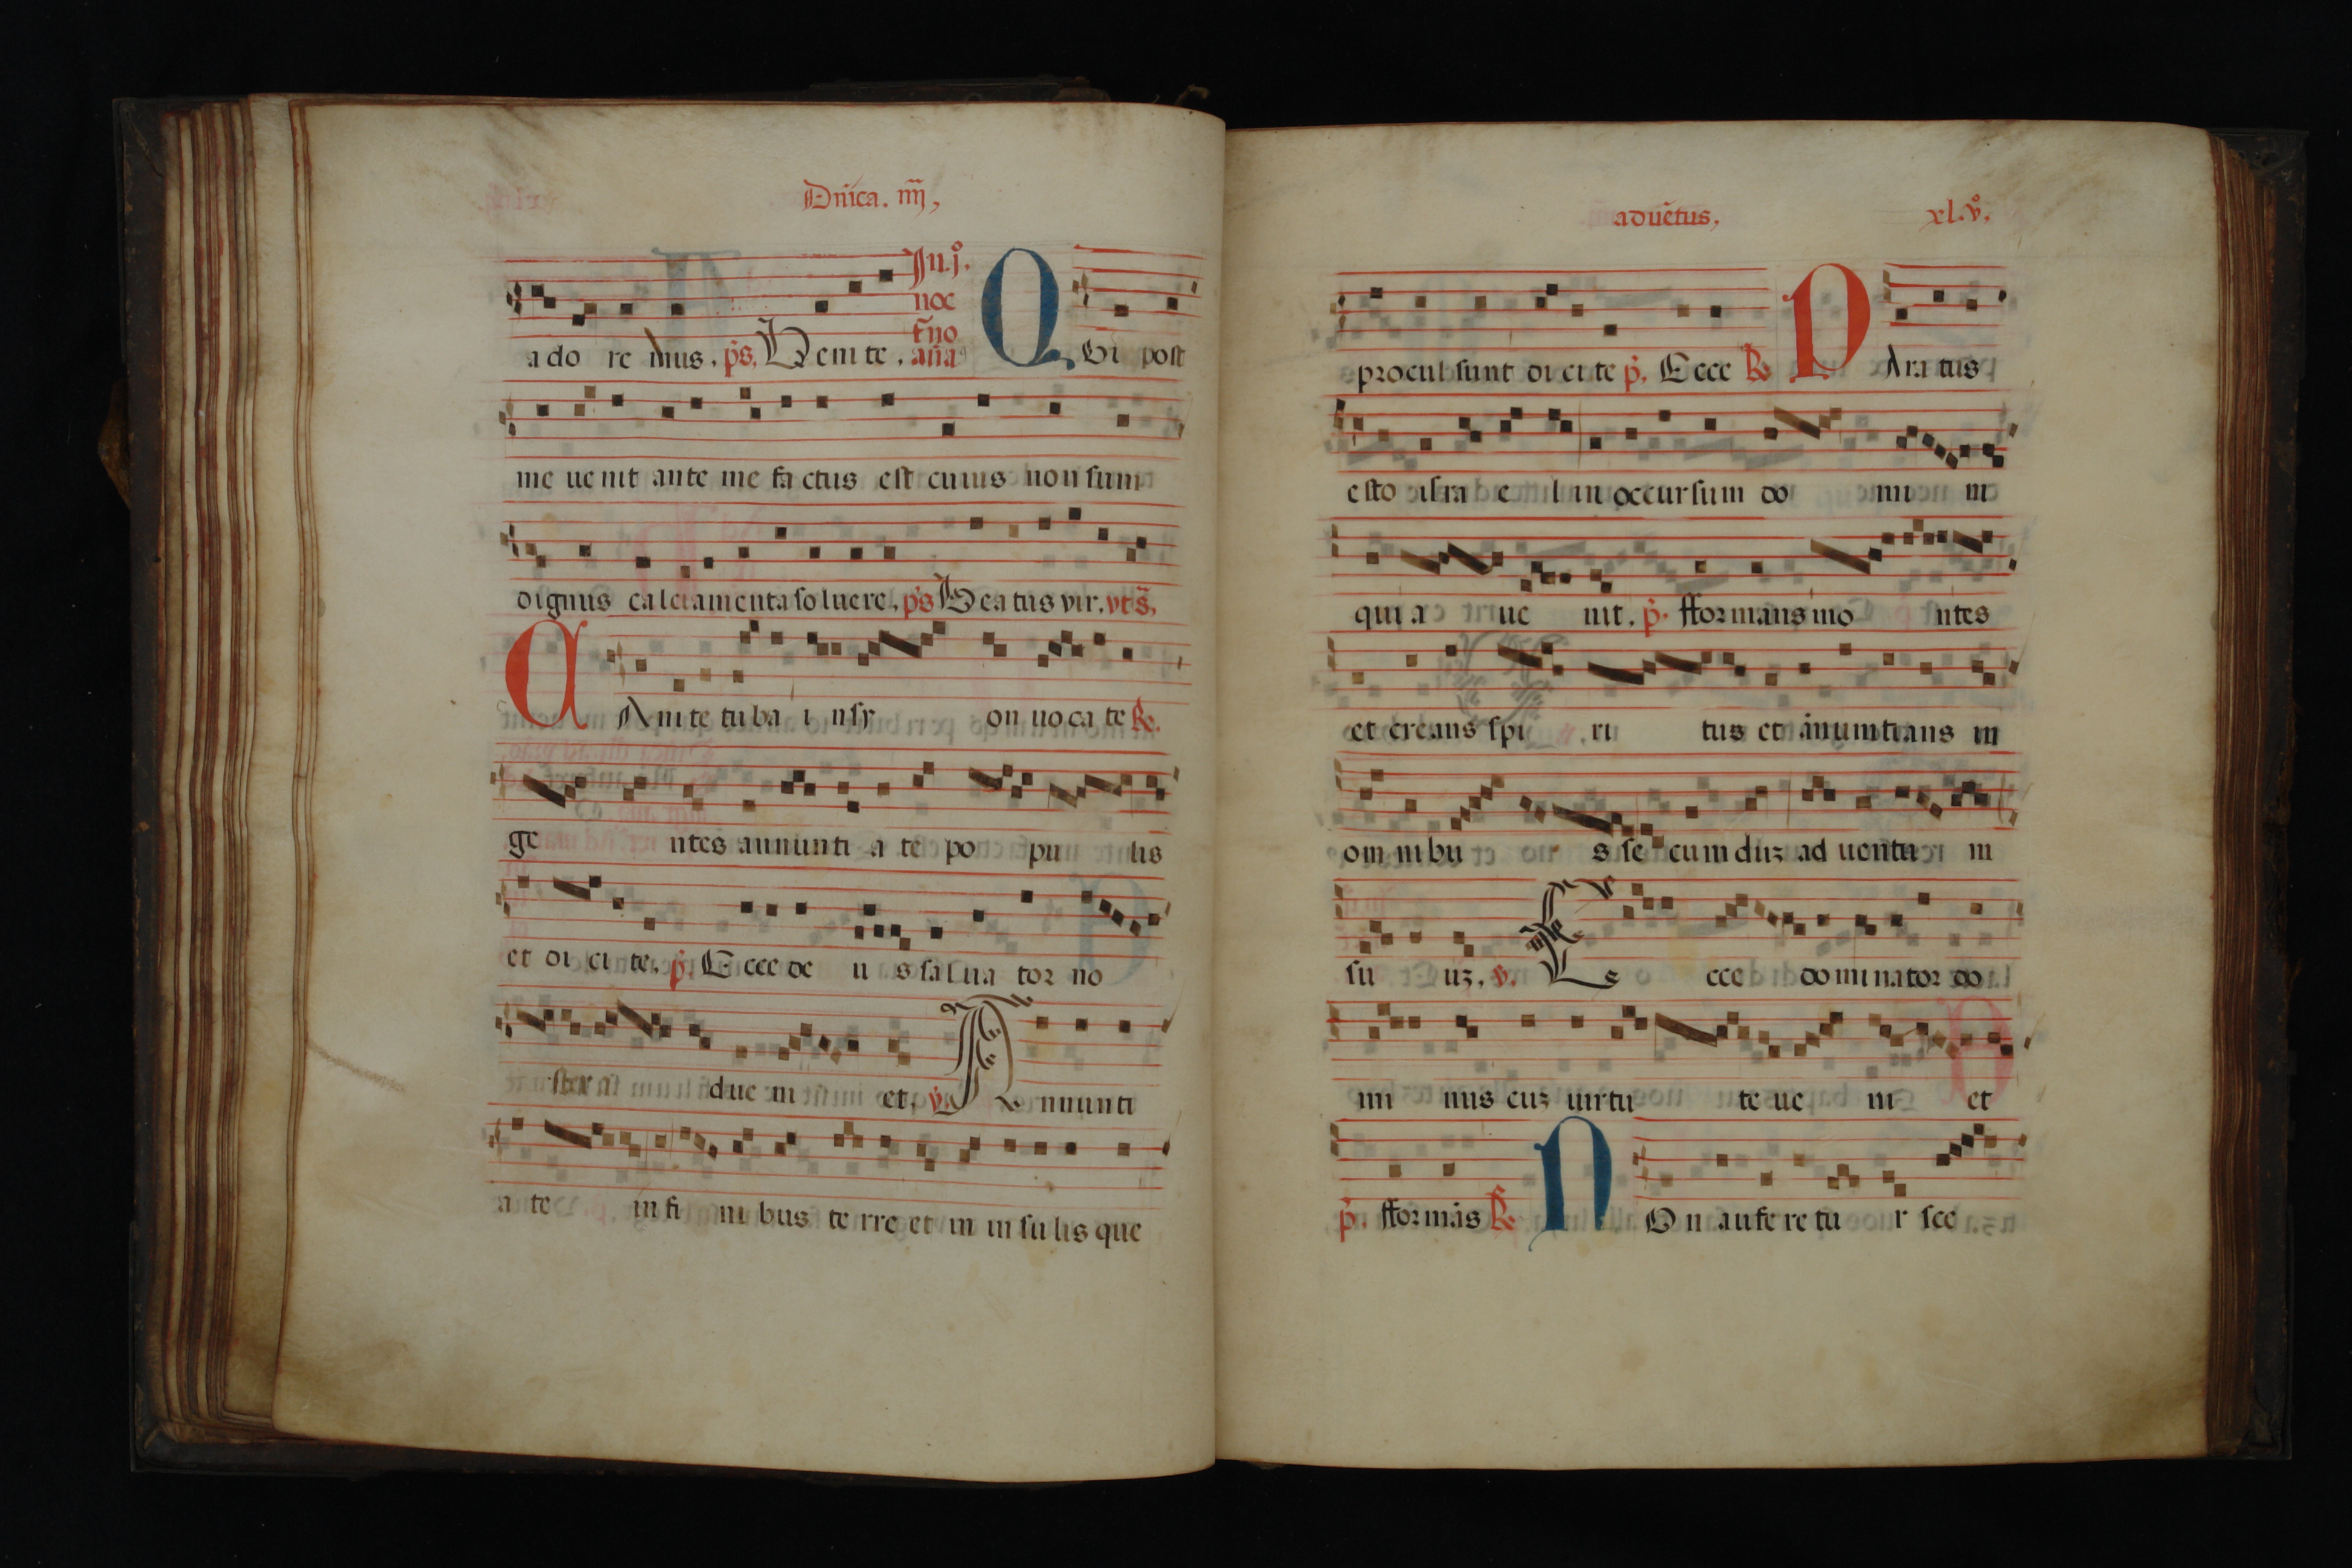 Dñica. iiij,
Jn. j.º
noc
t̃no
ado re mus. p̄s. Venite. aña QUi post
me uenit ante me factus est cuius non sum
dignus calciamenta soluere. p̄s Beatus vir. vt s̄.
CAnite tuba in sy on uocate ℟.
ge ntes annunti a te po pu lis
et di ci te. p̄. Ecce de u s salua tor no
ster ad ue ni et. v. Annunti
a te in fi ni bus te rre et in insulis que
aduẽtus, xl.vº.
procul sunt dicite p̄. Ecce ℟ PAratus
esto isra e l in occursum do mi ni
qui a ue nit. p̄. fformans mo ntes
et creans spi ri tus et ãnuntians in
omnibu s se cum duz ad uentu m
su uz. v. Ecce dominator do
mi nus cuz uirtu te ue ni et
p̄. fformãs ℟ NOn aufere tu r sce